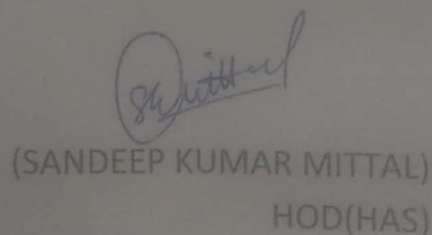 SKMittal
(SANDEEP KUMAR MITTAL)
HOD(HAS)